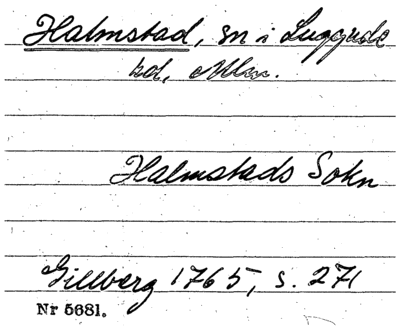 Halmstad, sn i Luggude
hd, Mlm.
Halmstads Sokn
Gillberg 1765, s. 271
Nr 5681.